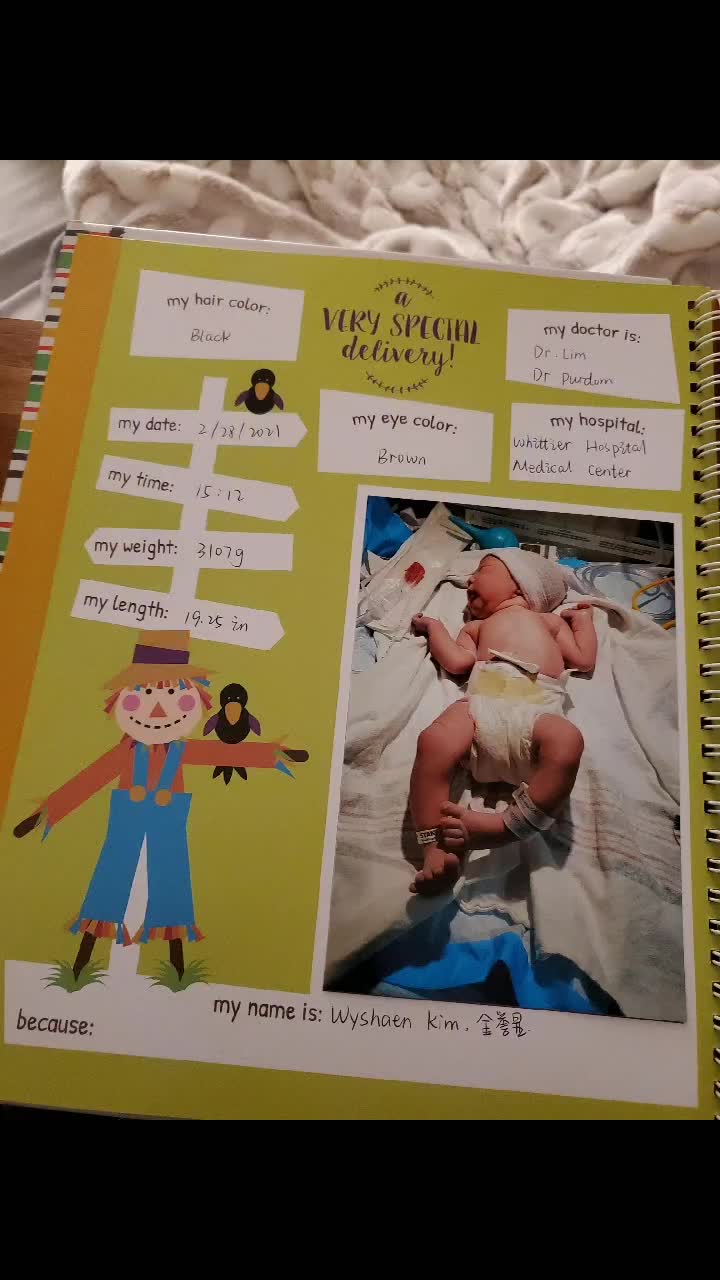 my hair color:
Black
a
VERY SPECIAL
delivery!
my doctor is:
Dr. Lim
Dr Purdum
my date: 2/28/2021
my eye color:
Brown
my hospital:
Whittier Hospital
Medical Center
my time: 15:12
my weight: 3107g
my length: 19.25 in
my name is: Wyshaen Kim, 金
because: